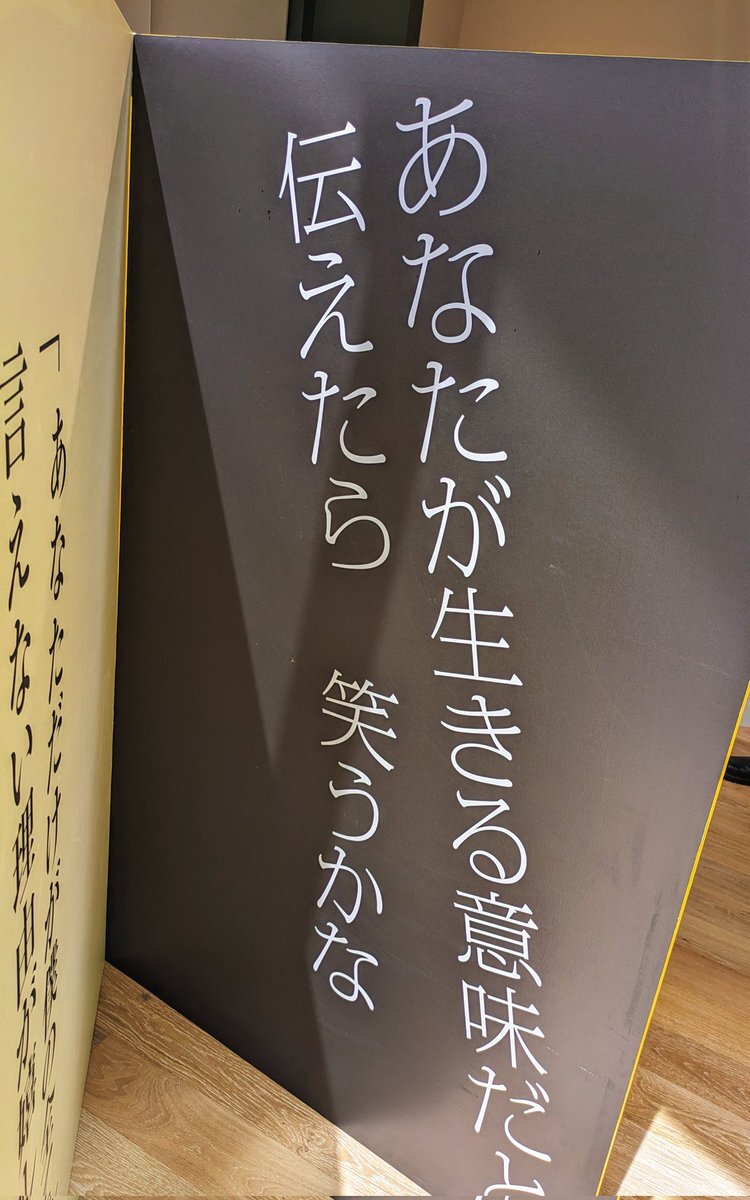 あなたが生きる意味だと
伝えたら　笑うかな
「あなただけが
言えない理由が